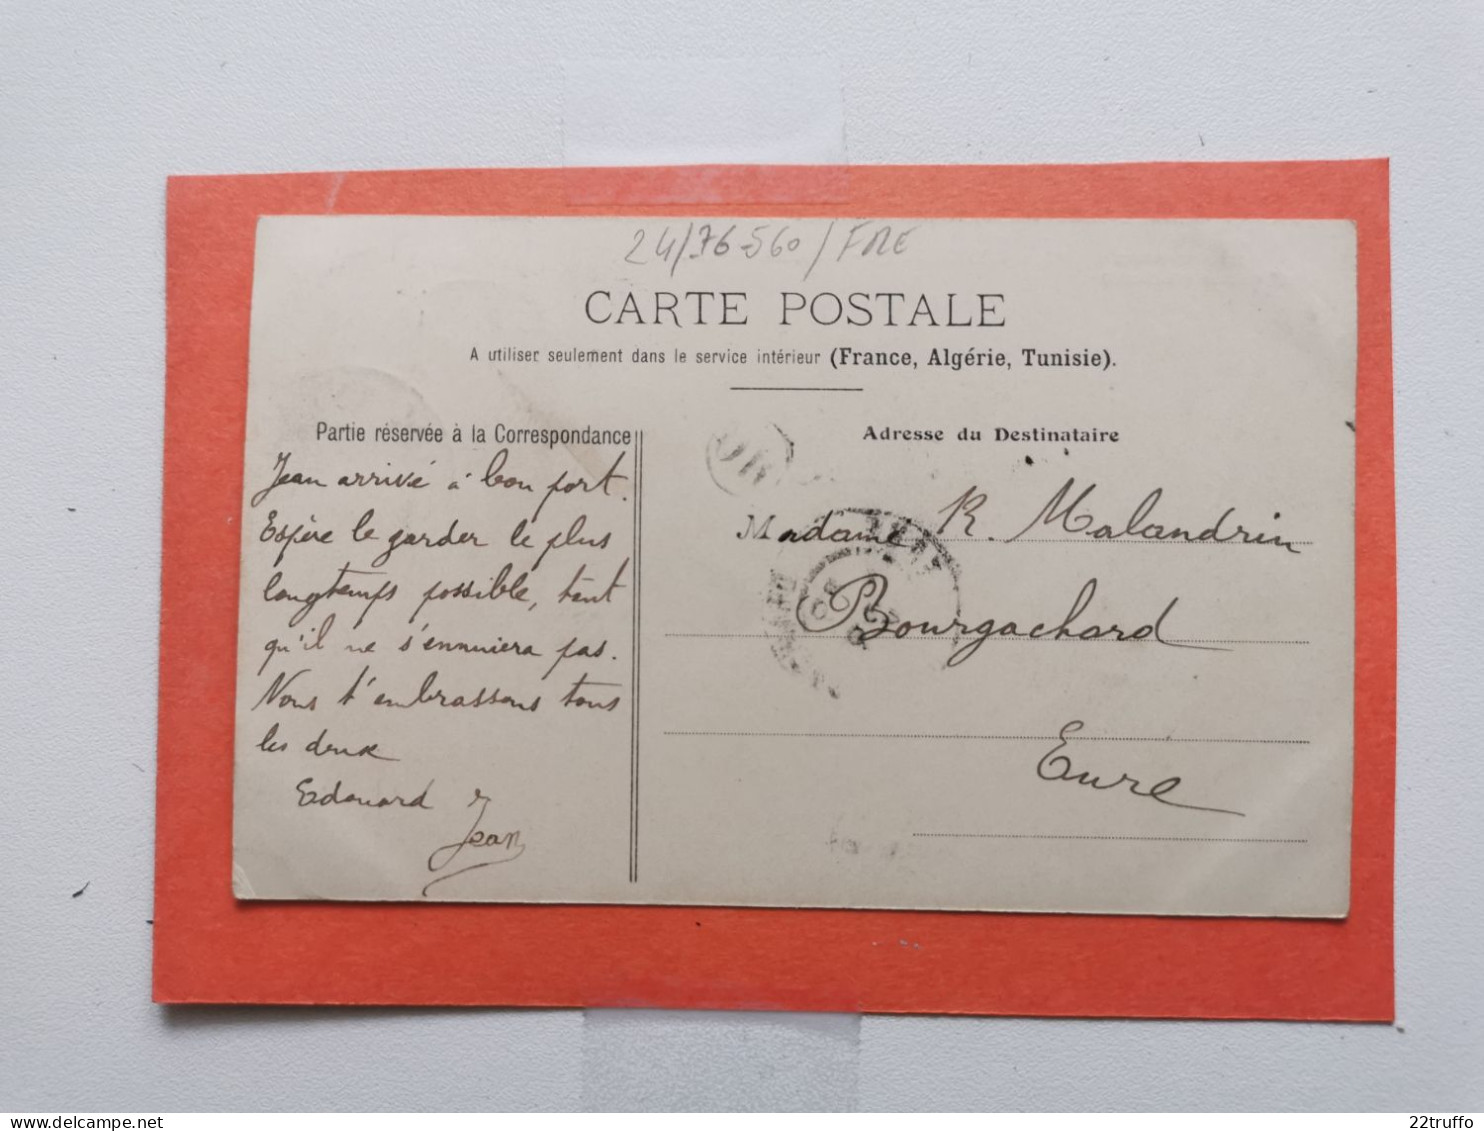 24/76-560/FRE
CARTE POSTALE
A utiliser seulement dans le service intérieur (France, Algérie, Tunisie).
Partie réservée à la Correspondance
Jean arrivé à bon port.
Espère le garder le plus
longtemps possible, tant
qu'il ne s'ennuiera pas.
Nous t'embrassons tous
les deux
Edouard
Jean
Adresse du Destinataire
OR
Madame R. Malandrin
Bourgachard
Eure
delcampe.net
22truffo